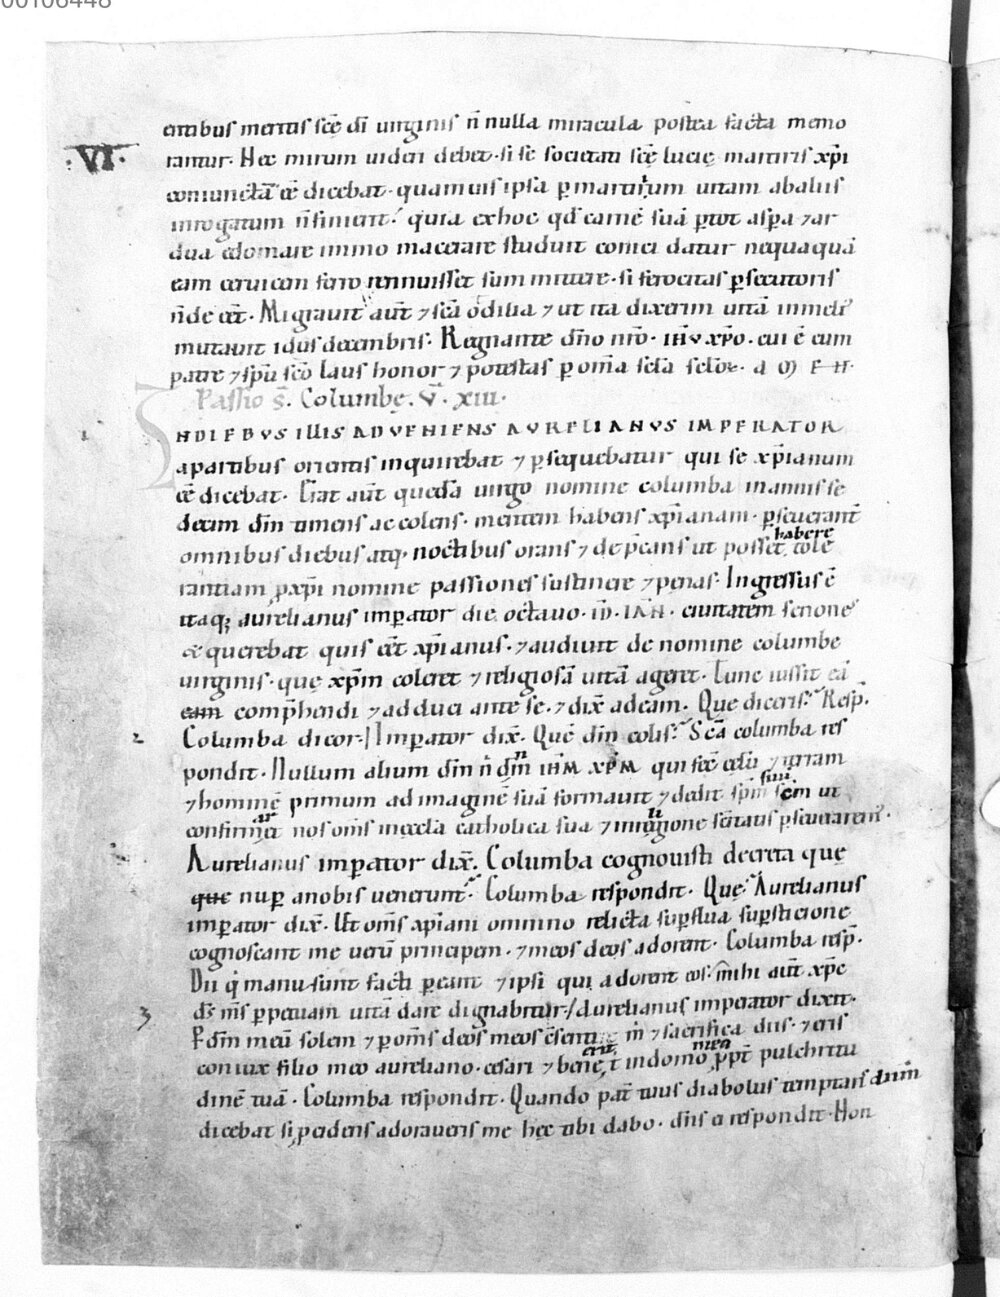 00106448
entibus meritis scę di uirginis n̄ nulla miracula postea facta memo
·VI·
rantur. Hec mirum uideri debet. si se societati scę lucię martiris xp̄i
coniunctā ēē dicebat. quamuis ipsa p martirium uitam abalus
inrogatum n̄ finierit. quia ex hoc qd carnē suā p tot aspa ⁊ ar
dua edomare immo macerare studuit conici datur nequaquā
eam ceruicem ferro rennuisset summittere. si ferocitas psecutoris
n̄ deēēt. Migrauit aut̄ ⁊ scā odilia ⁊ ut ita dixerim uitā in meli
mutauit idus decembris. Regnante dn̄o nr̄o. ihv xp̄o. cui ē cum
patre ⁊ sp̄u scō laus honor ⁊ potestas p om̄a scła scłor. a m e n.
Passio s̄. Columbę. v̄. xiii.
INDIEBVS ILLIS ADVENIENS AVRELIANVS IMPERATOR
a partibus orientis inquirebat ⁊ psequebatur qui se xp̄ianum
ēē dicebat. Erat aut̄ quedā uirgo nomine columba in annis se
decim dm̄ timens ac colens. mentem habens xp̄ianam. pseuerant̄
omnibus diebus atq; noctibus orans ⁊ dep̄cans ut posset tole
habere
rantiam p xp̄i nomine passiones sustinere ⁊ penas. Ingressus ē
itaq; aurelianus impator die octauo. id̄. IAN. ciuitatem senones
⁊ querebat quis ēēt xp̄ianus. ⁊ audiuit de nomine columbe
uirginis. quę xp̄m coleret ⁊ religiosā uitā ageret. Tunc iussit eā
eam comp̄hendi ⁊ adduci ante se. ⁊ dix̄ ad eam. Que diceris. Resp̄.
2
Columba dicor. Impator dix̄. Quē dm̄ colis. Scā columba res
pondit. Nullum alium dm̄ n̄ dn̄m IHM XPM qui fec̄ celū ⁊ terram
⁊ hominē primum ad imaginē suā formauit ⁊ dedit sp̄m scm̄ ut
suū
confirmet nos om̄s in eccła catholica sua
Aurelianus impator dix̄. Columba cognouisti decreta quę
que nup a nobis uenerunt. Columba respondit. Que. Aurelianus
impator dix̄. Ut om̄s xp̄iani omnino relicta supflua supsticione
cognoscant me uerū principem. ⁊ meos deos adorent. Columba resp̄.
Dii q̇ manu sunt facti pereant ⁊ ipsi qui adorent eos. mihi aut̄ xp̄c
d̄s m̄s ppetuam uitā dare dignabitur. Aurelianus imperator dixit.
3
P dm̄ meū solem ⁊ p om̄s deos meos ⁊ sacrifica diis. ⁊ eris
coniux filio meo aureliano. cesari ⁊ bene t̄ in domo ppt̄ pulchritu
erit
mea
dinē tuā. Columba respondit. Quando pat̄ tuus diabolus temptans dn̄m
dicebat si pcidens adoraueris me hęc tibi dabo. dn̄s ei respondit. Non